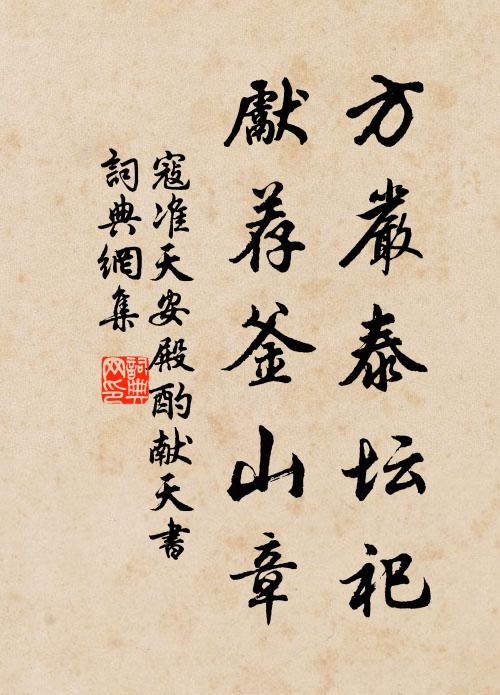 方嚴泰坛祀
獻荐釜山章
寇准天安殿酌献天書
詞典網集
詞典
网印